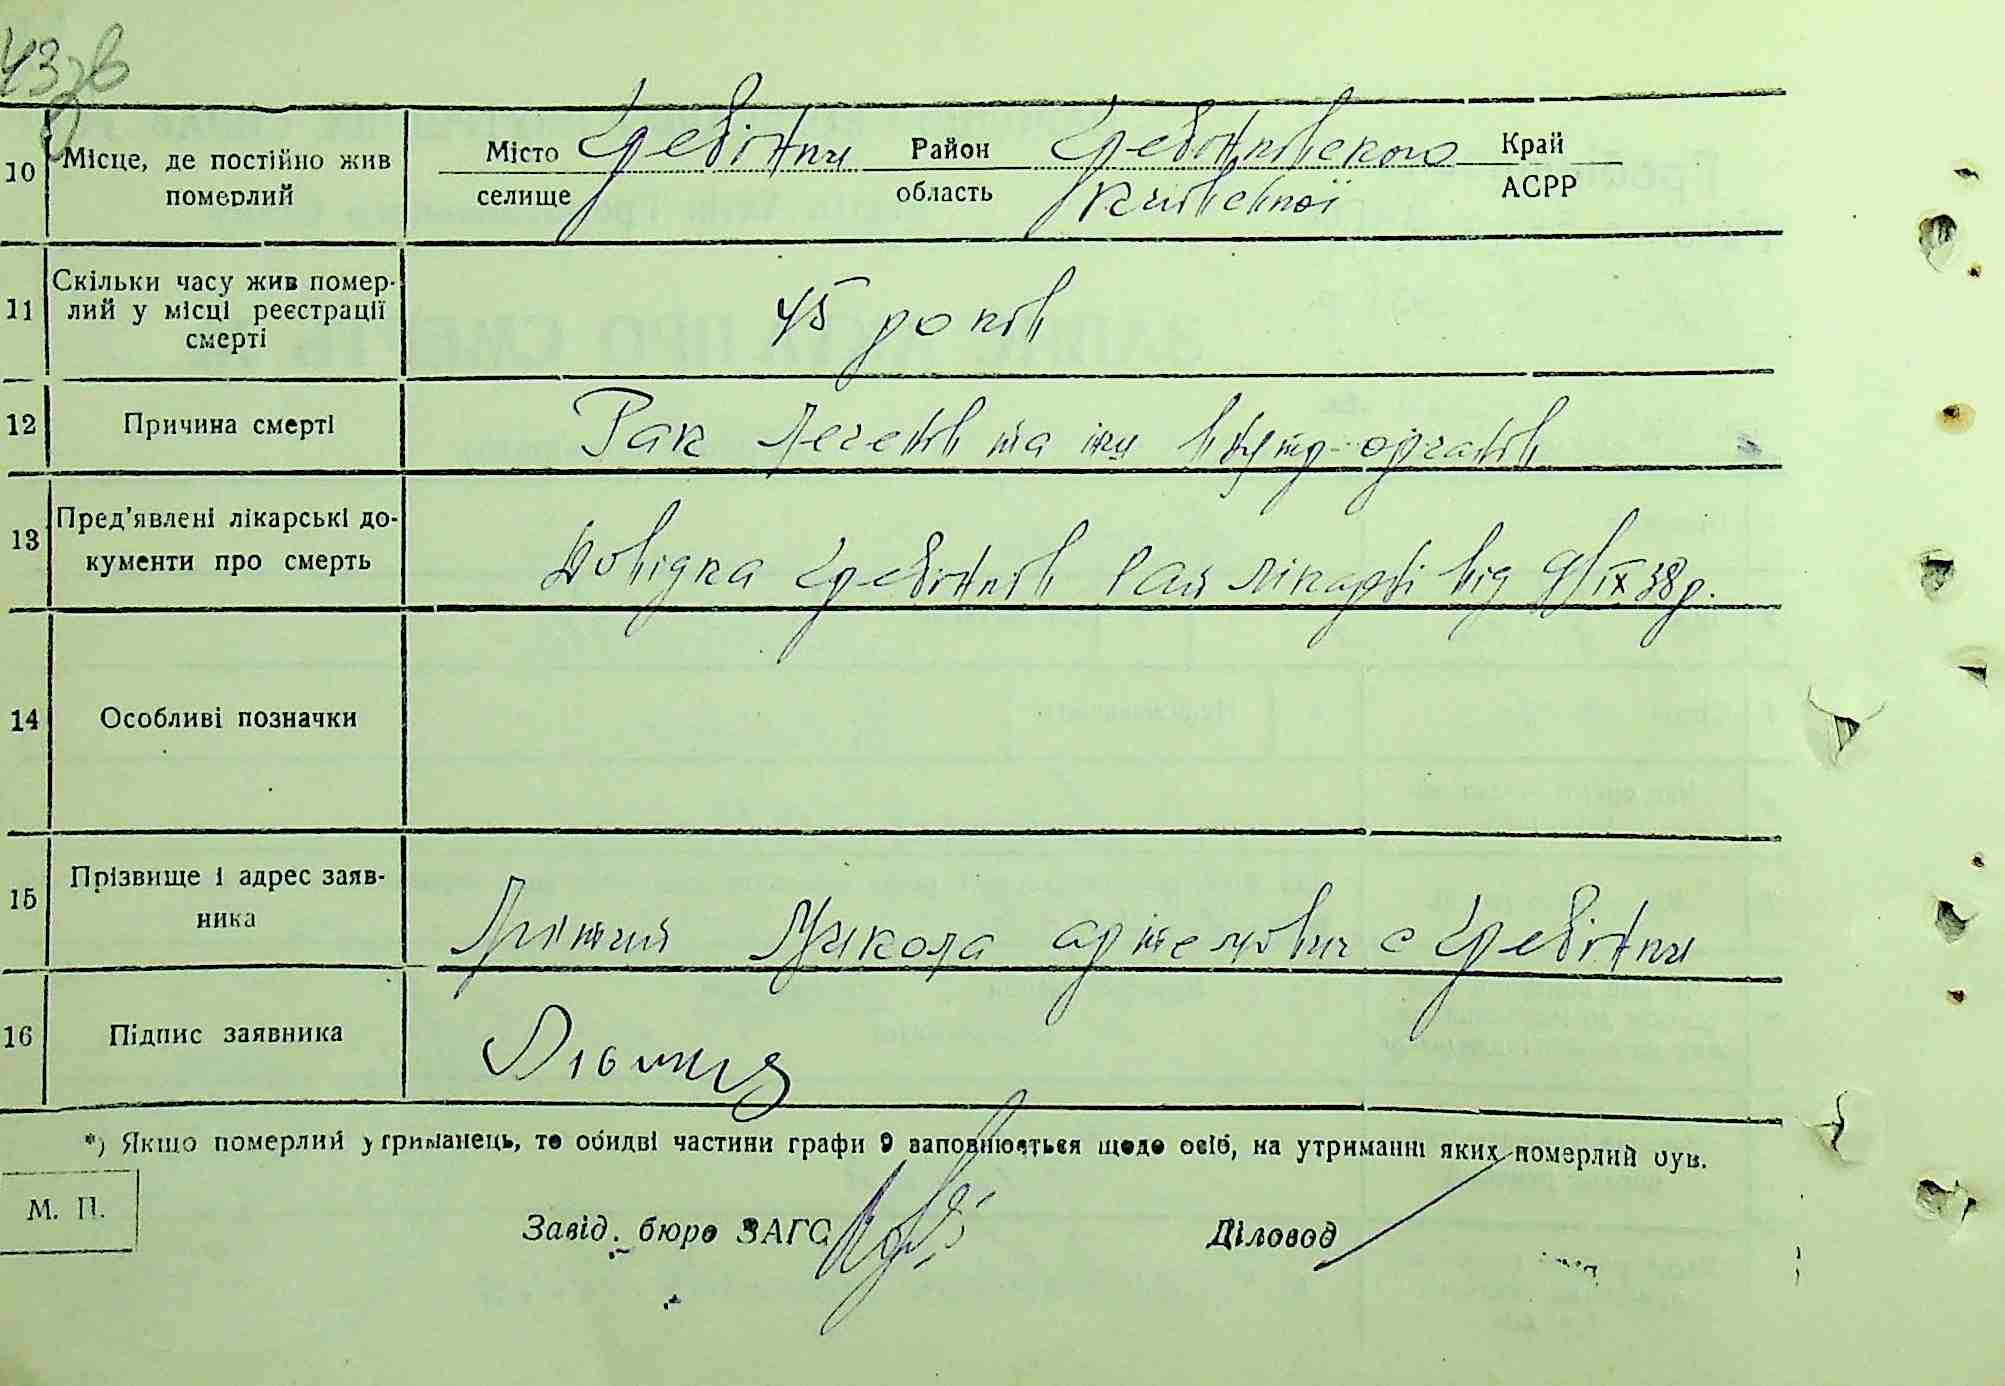 43зв
10 Місце, де постійно жив померлий
Місто Гребінки Район Гребінківського Край
селище область Київської АСРР
11 Скільки часу жив помер-
лий у місці реєстрації
смерті
45 років
12 Причина смерті Рак легенів та інш внутр-органів
13 Пред'явлені лікарські до-
кументи про смерть
Довідка Гребінків Рай лікарні від 9/IX 38р.
14 Особливі позначки
15 Прізвище і адрес заяв-
ника
Микола Артемович с Гребінки
16 Підпис заявника
*) Якщо померлий утриманець, то обидві частини графи 9 заповнюється щодо осіб, на утриманні яких померлий був.
М. П.
Завід. бюро ЗАГС Діловод